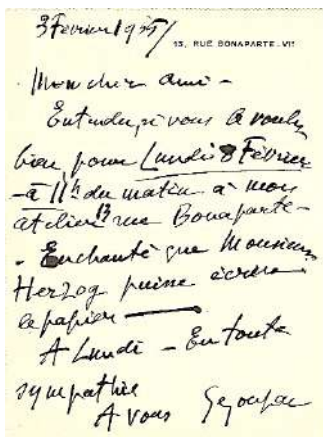 3 Février 195
13, RUE BONAPARTE-VIᵉ
Mon cher ami -
Entendu, si vous le voulez
bien, pour Lundi 8 Février
- à 11h du matin à mon
atelier 13 rue Bonaparte -
- Enchanté que Monsieur
Herzog puisse écrire
le papier
A Lundi - En toute
sympathie
A vous